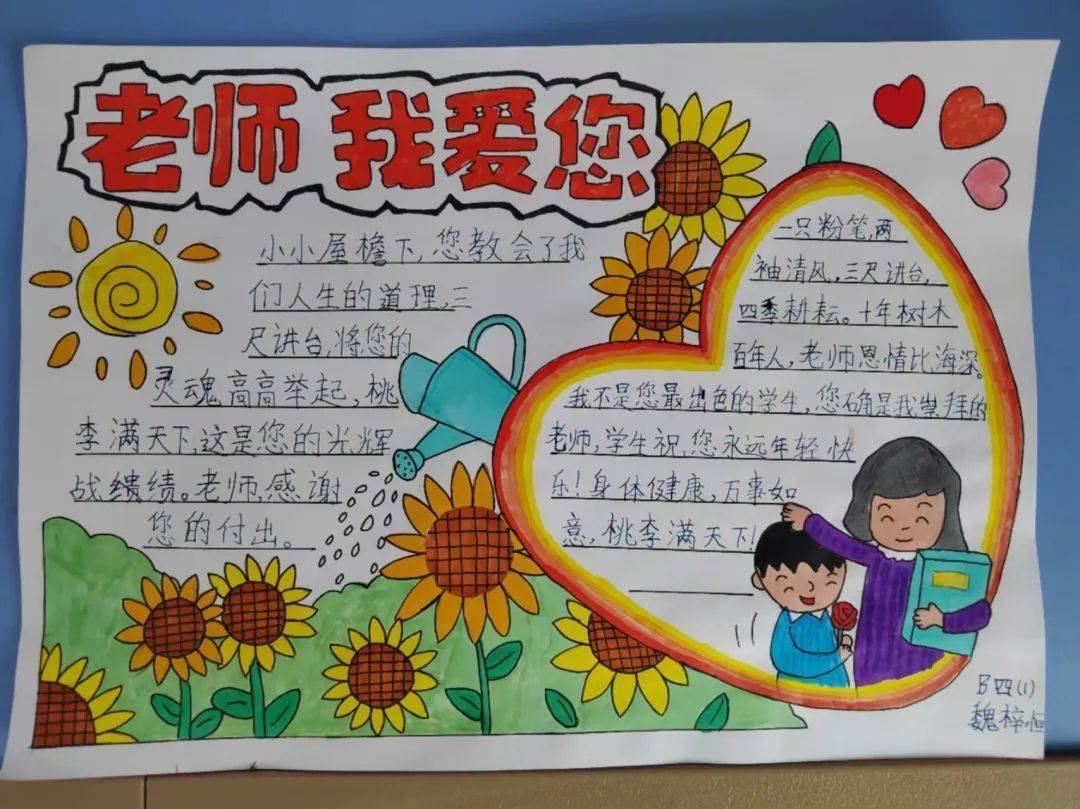 老师 我爱您
小小屋檐下,您教会了我
们人生的道理,三
尺讲台,将您的
灵魂高高举起,桃
李满天下,这是您的光辉
战绩绩。老师,感谢
您的付出。
一只粉笔,两
袖清风,三尺讲台,
四季耕耘。十年树木
百年人,老师恩情比海深。
我不是您最出色的学生,您确是我崇拜的
老师,学生祝,您永远年轻快
乐!身体健康,万事如
意,桃李满天下!
B四(1)
魏梓恒